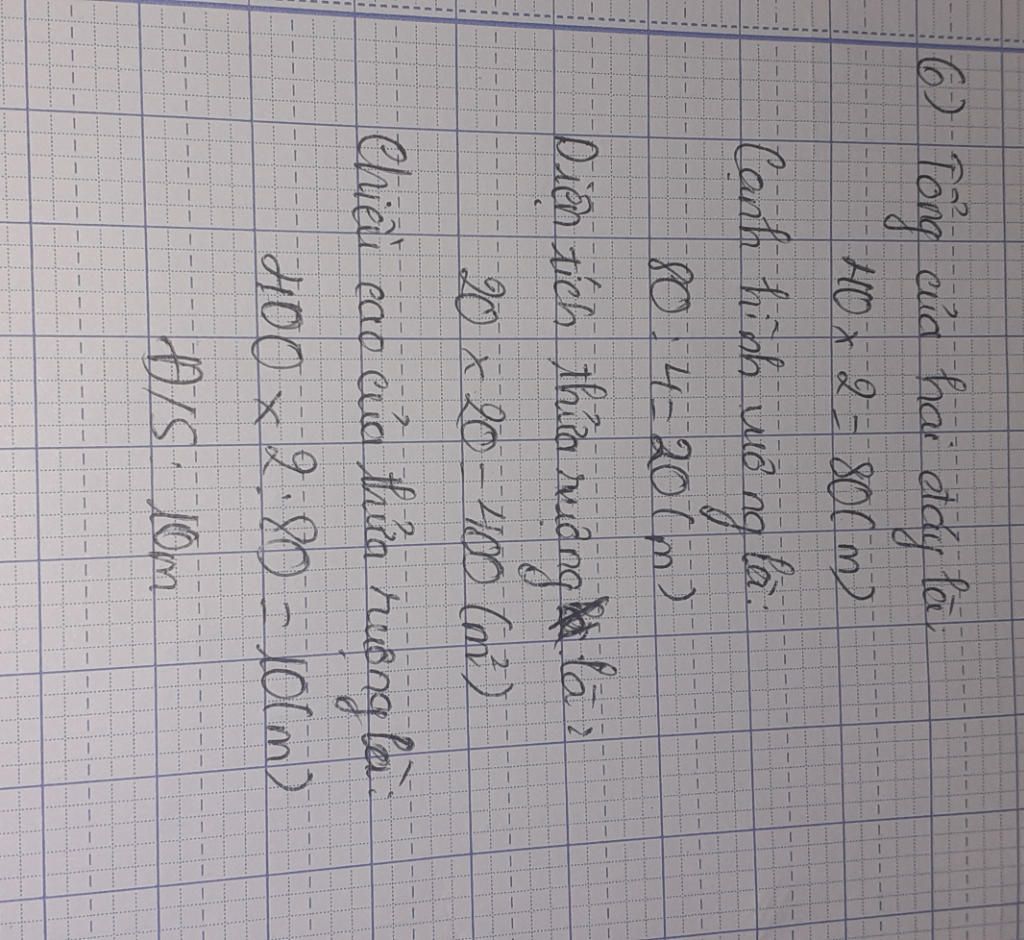 6) Tổng của hai đáy là:
40 x 2 = 80 (m)
Cạnh hình vuông là:
80 : 4 = 20 (m)
Diện tích thửa ruộng là:
20 x 20 = 400 (m²)
Chiều cao của thửa ruộng là:
400 x 2 : 80 = 10 (m)
Đ/S: 10m